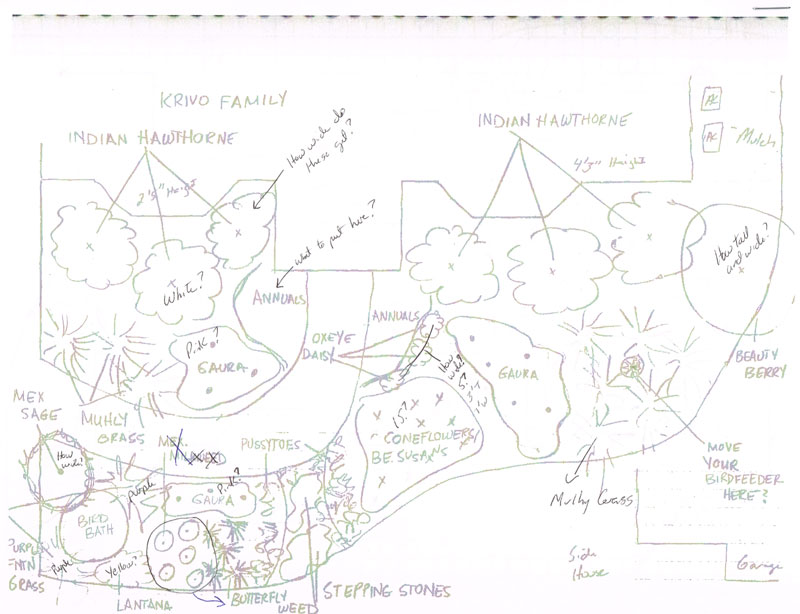 KRIVO FAMILY
INDIAN HAWTHORNE
How wide do
these get?
INDIAN HAWTHORNE
AC
AC
Mulch
2'5" Height
4'5" Height
what to put here?
How tall
and wide?
White?
ANNUALS
ANNUALS
Pink?
OXEYE
DAISY
GAURA
How
wide?
GAURA
BEAUTY
BERRY
MEX
SAGE
MUHLY
GRASS
15?
CONEFLOWERS
B.E. SUSANS
MEX.
PUSSYTOES
How
wide?
Purple
GAURA
Pink?
MOVE
YOUR
BIRDFEEDER
HERE?
Mulhy Grass
BIRD
BATH
PURPLE
FNTN
GRASS
Purple
Yellow?
LANTANA
BUTTERFLY
WEED
STEPPING STONES
Side
House
Garage